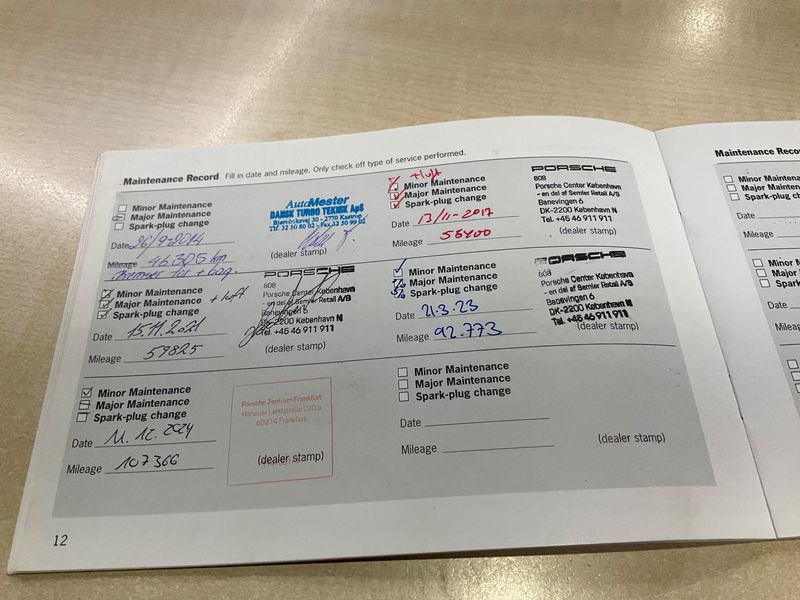 Maintenance Record Fill in date and mileage. Only check off type of service performed.
Minor Maintenance
Major Maintenance
Spark-plug change
Date 26/9-2014
Mileage 46305 km
Bremser for + bag.
AutoMester
DANSK TURBO TEKNIK ApS
Bjørnöskovej 30 - 2770 Kastrup
Tlf. 32 50 80 02 - Fax 32 50 99 02
(dealer stamp)
+ luft
Minor Maintenance
Major Maintenance
Spark-plug change
Date 13/11-2017
Mileage 56400
PORSCHE
808
Porsche Center København
- en del af Semler Retail A/S
Banevingen 6
DK-2200 København N
Tel. +45 46 911 911
(dealer stamp)
Minor Maintenance
Major Maintenance + luft
Spark-plug change
Date 15.11.2021
Mileage 59825
PORSCHE
808
Porsche Center København
- en del af Semler Retail A/S
Banevingen 6
DK-2200 København N
Tel. +45 46 911 911
(dealer stamp)
Minor Maintenance
Major Maintenance
Spark-plug change
Date 21.3.23
Mileage 92.773
PORSCHE
808
Porsche Center København
- en del af Semler Retail A/S
Banevingen 6
DK-2200 København N
Tel. +45 46 911 911
Minor Maintenance
Major Maintenance
Spark-plug change
Date 11.12.2024
Mileage 107366
Porsche Zentrum Frankfurt
Hanauer Landstraße 220 a
60314 Frankfurt
(dealer stamp)
Minor Maintenance
Major Maintenance
Spark-plug change
Date
Mileage
(dealer stamp)
12
Maintenance Reco
Minor Maintenance
Major Maintenance
Spark-plug change
Date
Mileage
Minor M
Major M
Spark-p
Date
Mileage
M
M
S
Date
Mileage